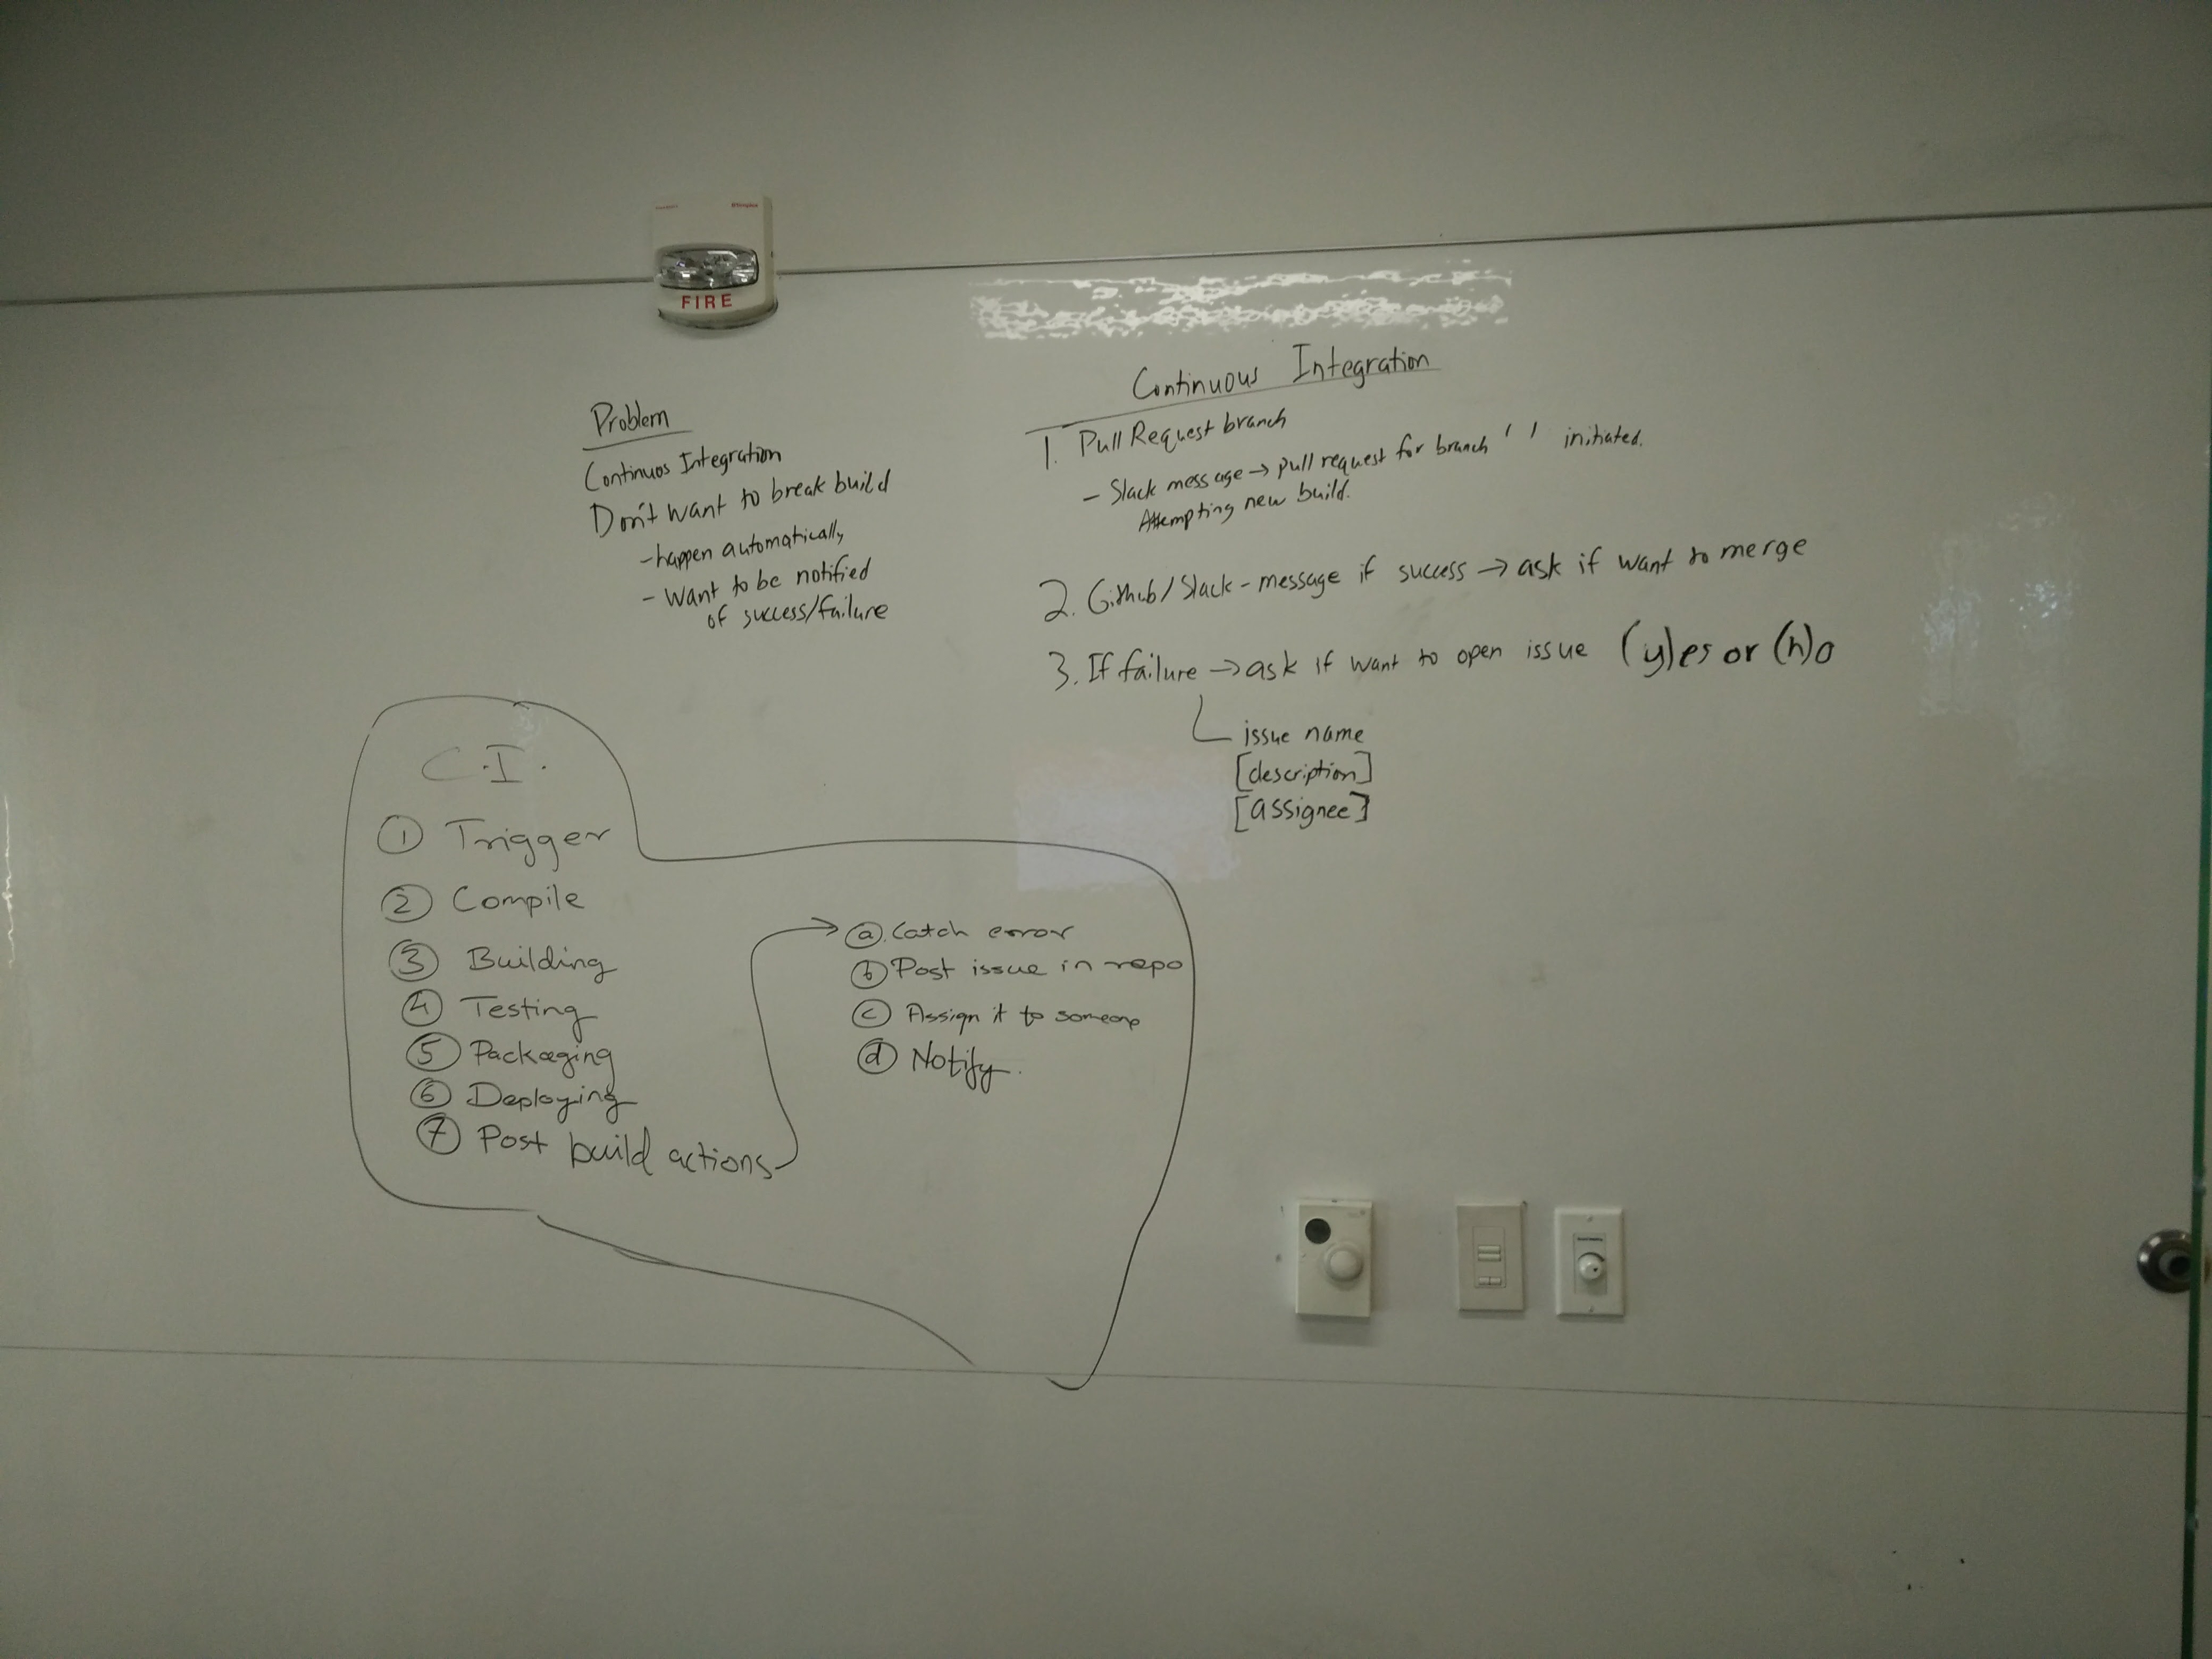 FIRE
Problem
Continuos Integration
Don't want to break build
- happen automatically
- Want to be notified
of success/failure
Continuous Integration
1. Pull Request branch
- Slack message → pull request for branch ' ' initiated.
Attempting new build.
2. Github/Slack - message if success → ask if want to merge
3. If failure → ask if want to open issue (y)es or (n)o
issue name
[description]
[assignee]
C.I.
1 Trigger
2 Compile
3 Building
4 Testing
5 Packaging
6 Deploying
7 Post build actions
a. Catch error
b Post issue in repo
c Assign it to someone
d Notify.